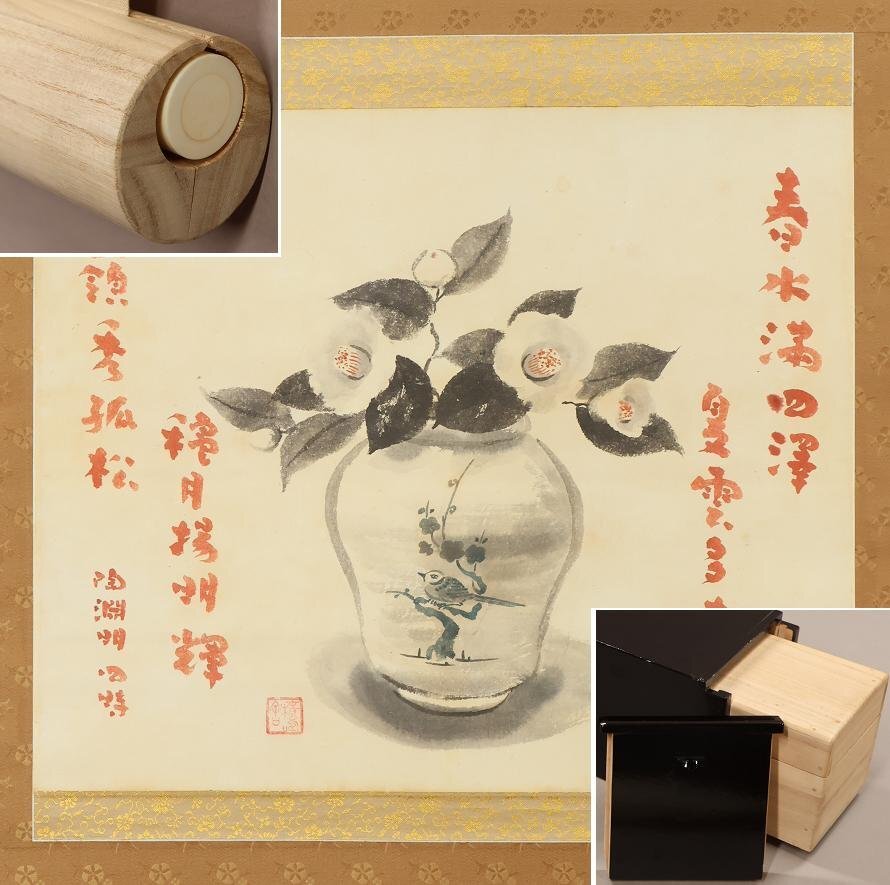 春水満四澤
夏雲多
穐月揚明輝
嶺秀孤松
陶淵明四時